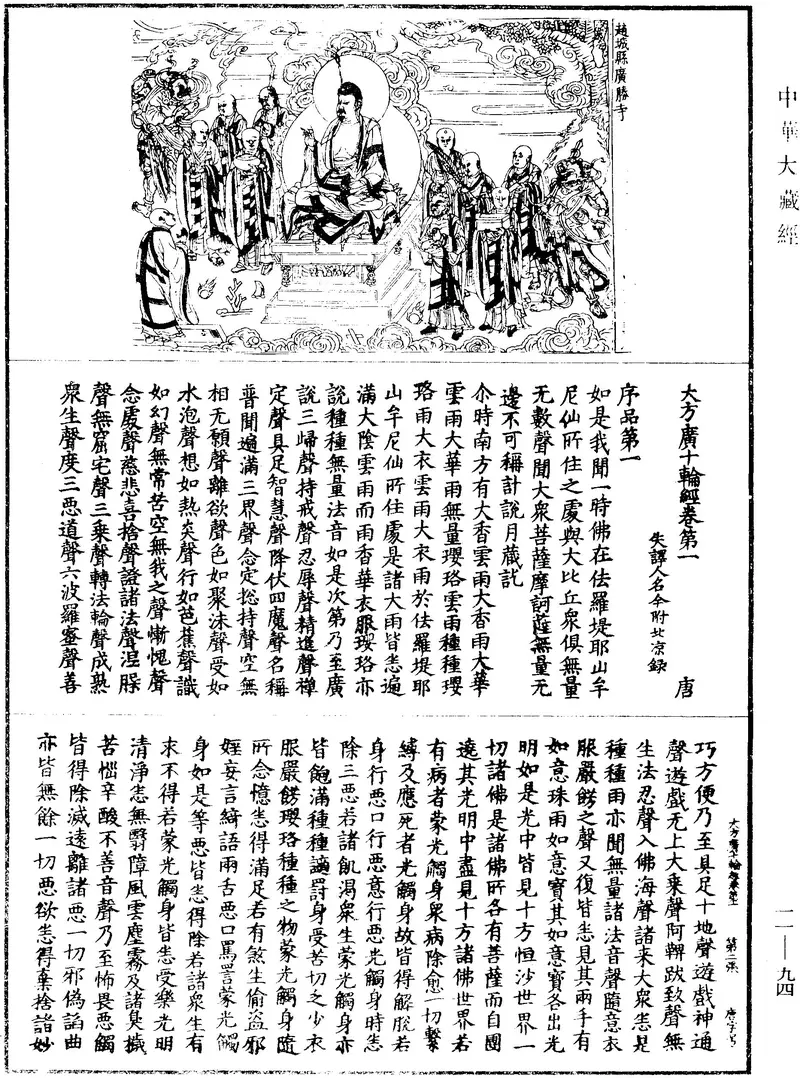 中華大藏經
趙城縣廣勝寺
大方廣十輪經卷第一　唐
失譯人名今附北涼録
序品第一
如是我聞一時佛在佉羅堤耶山牟
尼仙所住之處與大比丘衆俱無量
无數聲聞大衆菩薩摩訶薩無量无
邊不可稱計說月蔵訖
尒時南方有大香雲雨大香雨大華
雲雨大華雨無量瓔珞雲雨種種瓔
珞雨大衣雲雨大衣雨於佉羅堤耶
山牟尼仙所住處是諸大雨皆悉遍
滿大陰雲雨而雨香華衣服瓔珞亦
說種種無量法音如是次第乃至廣
說三歸聲持戒聲忍辱聲精進聲禪
定聲具足智慧聲降伏四魔聲名稱
普聞遍滿三界聲念定捴持聲空無
相无願聲離欲聲色如聚沫聲受如
水泡聲想如熱炎聲行如芭蕉聲識
如幻聲無常苦空無我之聲慚愧聲
念處聲慈悲喜捨聲證諸法聲涅槃
聲無窟宅聲三乘聲轉法輪聲成熟
衆生聲度三惡道聲六波羅蜜聲善
大方廣十輪經卷第一　第二張　唐字号
巧方便乃至具足十地聲遊戲神通
聲遊戲无上大乘聲阿鞞跋致聲無
生法忍聲入佛海聲諸来大衆悉是
種種雨亦聞無量諸法音聲隨意衣
服嚴餝之聲又復皆悉見其兩手有
如意珠雨如意寶其如意寶各出光
明如是光中皆見十方恒沙世界一
切諸佛是諸佛所各有菩薩而自圍
遶其光明中盡見十方諸佛世界若
有病者蒙光觸身衆病除愈一切繫
縛及應死者光觸身故皆得解脫若
身行惡口行惡意行惡光觸身時悉
除三惡若諸飢渴衆生蒙光觸身亦
皆飽滿種種讁罰身受苦切之少衣
服嚴餝瓔珞種種之物蒙光觸身隨
所念憶悉得滿足若有煞生偷盗邪
婬妄言綺語兩舌惡口罵詈蒙光觸
身如是等惡皆悉得除若諸衆生有
求不得若蒙光觸身皆悉受樂光明
清淨悉無翳障風雲塵霧及諸臭穢
苦惱辛酸不善音聲乃至怖畏惡觸
皆得除滅遠離諸惡一切邪偽諂曲
亦皆無餘一切惡欲悉得棄捨諸妙
一一—九四